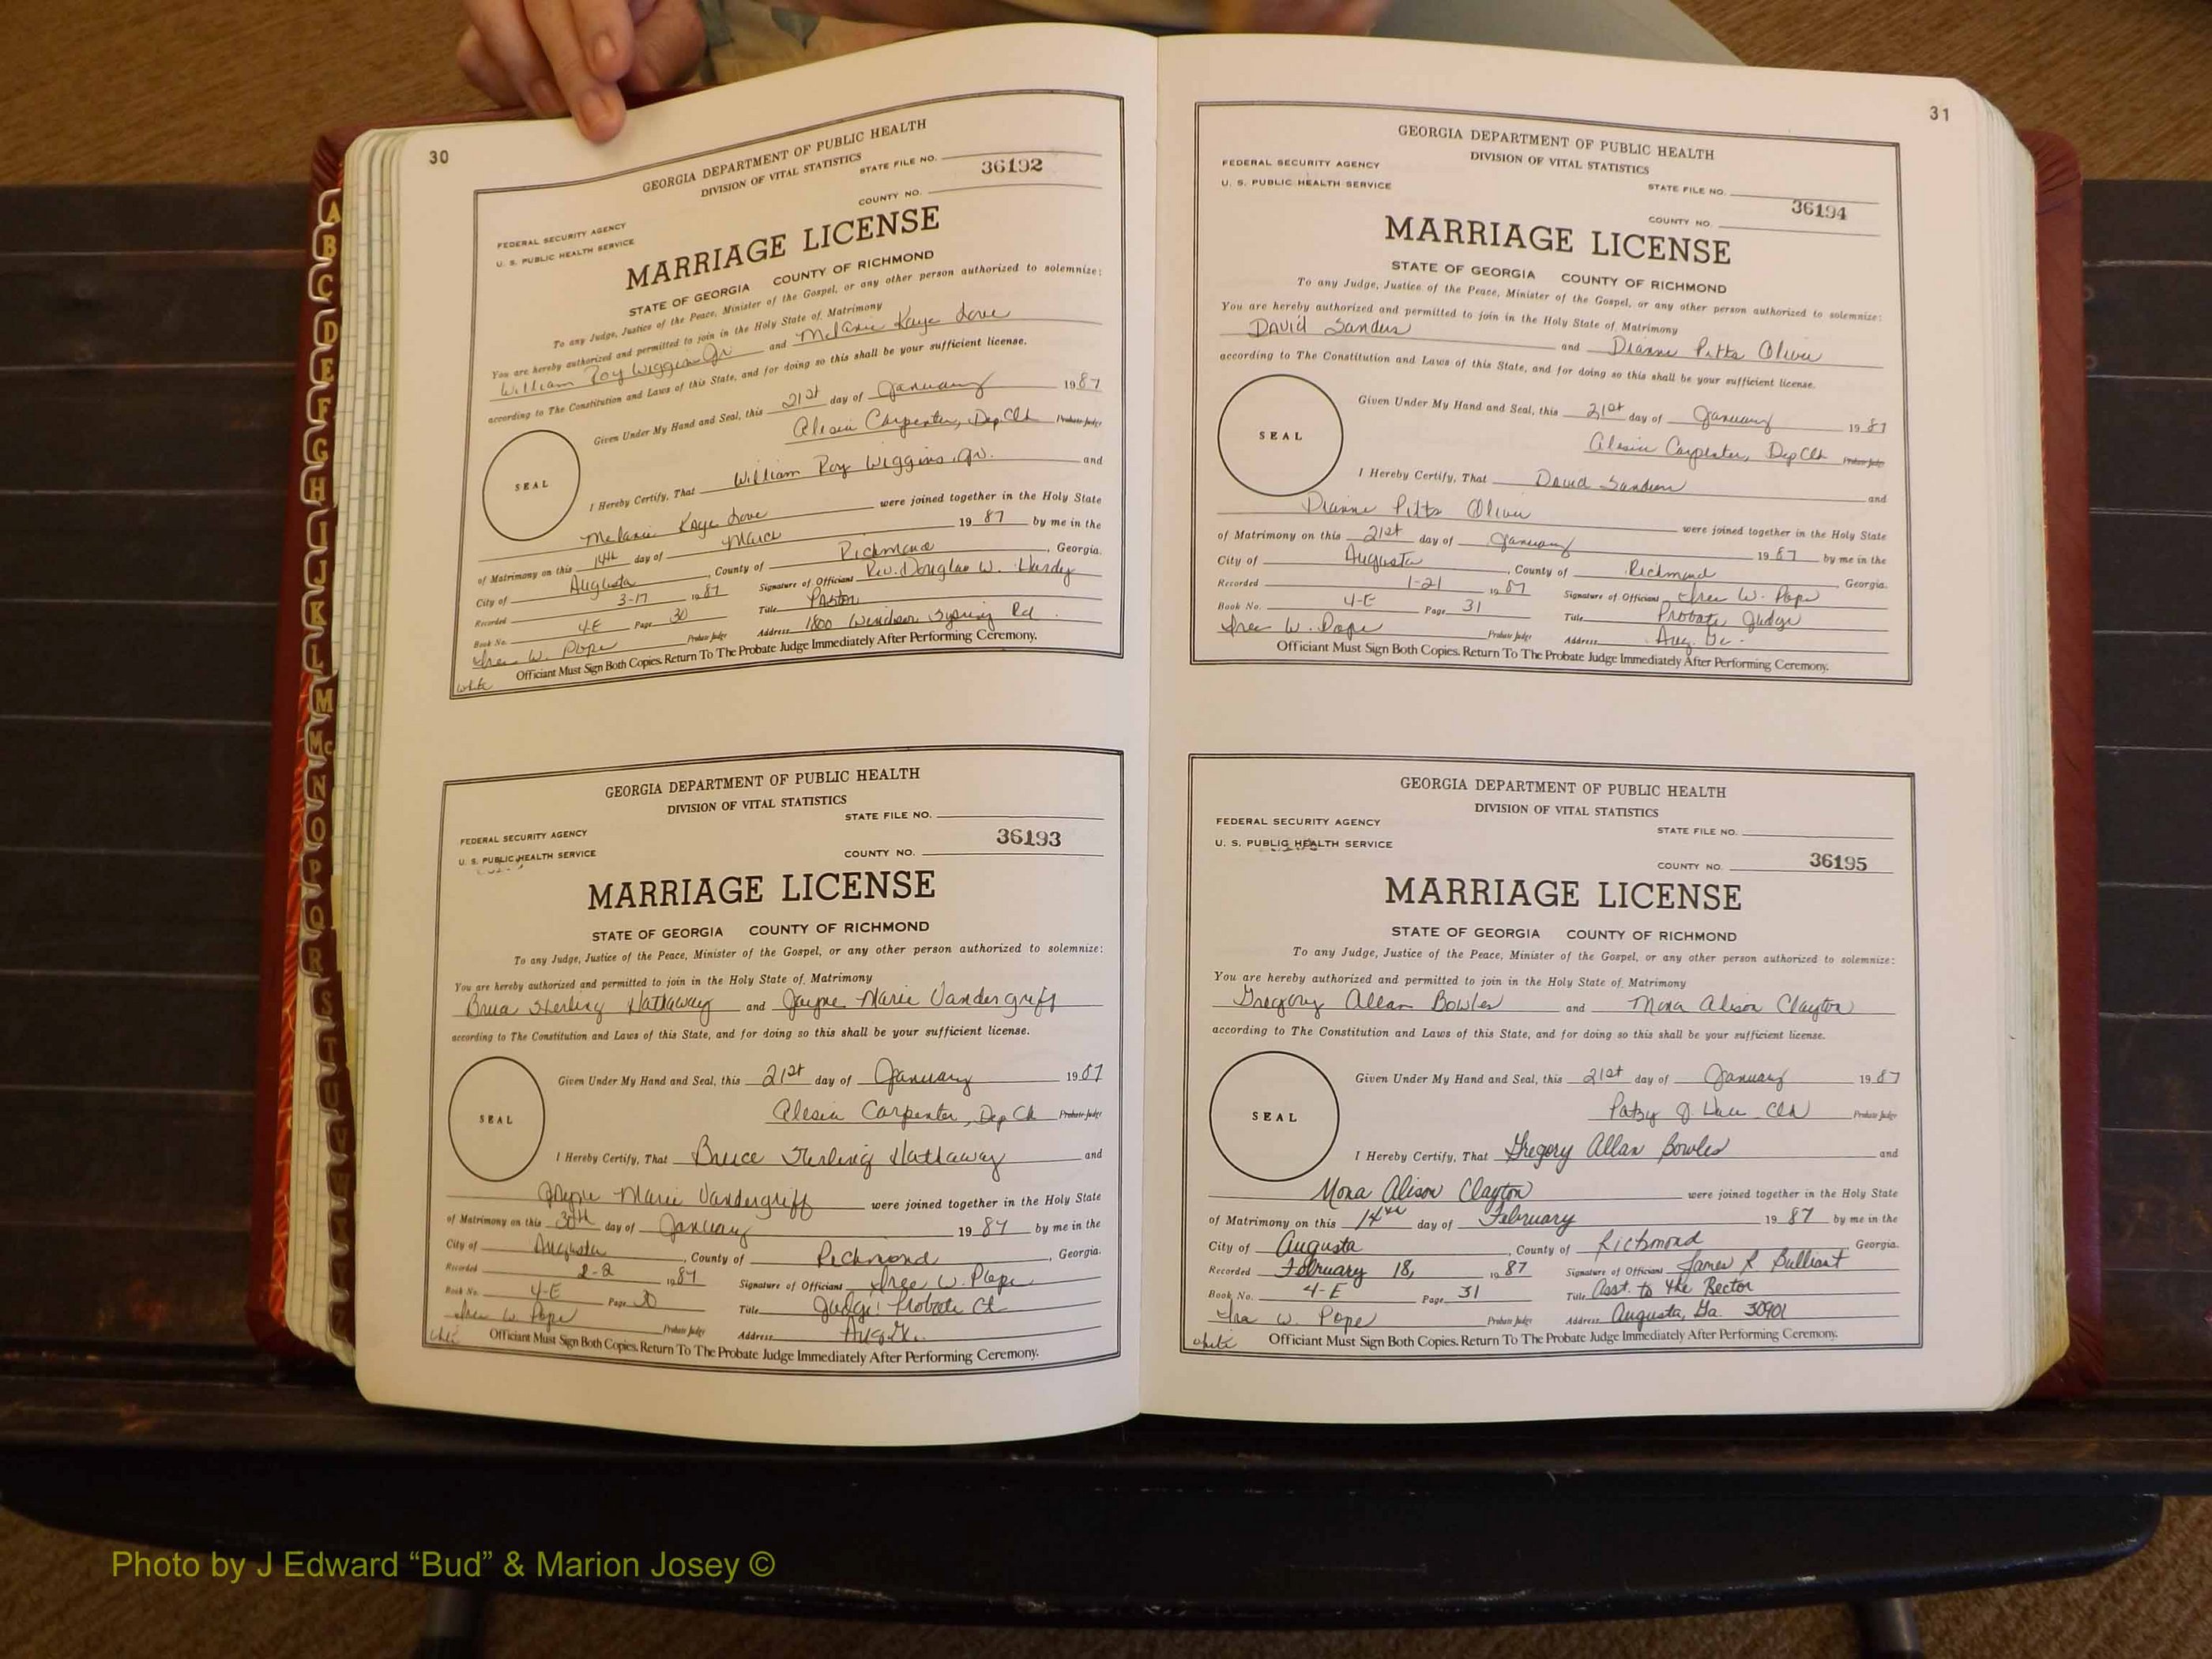 30
GEORGIA DEPARTMENT OF PUBLIC HEALTH
DIVISION OF VITAL STATISTICS
STATE FILE NO.
36192
FEDERAL SECURITY AGENCY
COUNTY NO.
U. S. PUBLIC HEALTH SERVICE
MARRIAGE LICENSE
STATE OF GEORGIA COUNTY OF RICHMOND
To any Judge, Justice of the Peace, Minister of the Gospel, or any other person authorized to solemnize:
You are hereby authorized and permitted to join in the Holy State of Matrimony
William Roy Wiggins Jr and Melanie Kaye Love
according to The Constitution and Laws of this State, and for doing so this shall be your sufficient license.
Given Under My Hand and Seal, this 21st day of January 1987
Alesia Carpenter, Dep Clk Probate Judge
SEAL
I Hereby Certify, That William Roy Wiggins, Jr. and
Melanie Kaye Love were joined together in the Holy State
of Matrimony on this 14th day of March 1987 by me in the
City of Augusta, County of Richmond, Georgia.
Recorded 3-17 1987 Signature of Officiant Rev. Douglas W. Hardy
Book No. 4-E Page 30 Title Pastor
W. Pope Probate Judge Address 1800 Windsor Spring Rd.
white Officiant Must Sign Both Copies. Return To The Probate Judge Immediately After Performing Ceremony.
GEORGIA DEPARTMENT OF PUBLIC HEALTH
DIVISION OF VITAL STATISTICS
STATE FILE NO.
FEDERAL SECURITY AGENCY
36193
U. S. PUBLIC HEALTH SERVICE
COUNTY NO.
MARRIAGE LICENSE
STATE OF GEORGIA COUNTY OF RICHMOND
To any Judge, Justice of the Peace, Minister of the Gospel, or any other person authorized to solemnize:
You are hereby authorized and permitted to join in the Holy State of Matrimony
Bruce Sterling Hathaway and Jayne Marie Vandergriff
according to The Constitution and Laws of this State, and for doing so this shall be your sufficient license.
Given Under My Hand and Seal, this 21st day of January 1987
Alesia Carpenter, Dep Clk Probate Judge
SEAL
I Hereby Certify, That Bruce Sterling Hathaway and
Jayne Marie Vandergriff were joined together in the Holy State
of Matrimony on this 30th day of January 1987 by me in the
City of Augusta, County of Richmond, Georgia.
Recorded 2-2 1987 Signature of Officiant W. Pope
Book No. 4-E Page 30 Title Judge Probate Ct
W. Pope Probate Judge Address Aug. Ga.
white Officiant Must Sign Both Copies. Return To The Probate Judge Immediately After Performing Ceremony.
31
GEORGIA DEPARTMENT OF PUBLIC HEALTH
DIVISION OF VITAL STATISTICS
FEDERAL SECURITY AGENCY
STATE FILE NO.
U. S. PUBLIC HEALTH SERVICE
36194
COUNTY NO.
MARRIAGE LICENSE
STATE OF GEORGIA COUNTY OF RICHMOND
To any Judge, Justice of the Peace, Minister of the Gospel, or any other person authorized to solemnize:
You are hereby authorized and permitted to join in the Holy State of Matrimony
David Sanders and Dianne Pitts Oliver
according to The Constitution and Laws of this State, and for doing so this shall be your sufficient license.
Given Under My Hand and Seal, this 21st day of January 1987
Alesia Carpenter, Dep Clk Probate Judge
SEAL
I Hereby Certify, That David Sanders and
Dianne Pitts Oliver were joined together in the Holy State
of Matrimony on this 21st day of January 1987 by me in the
City of Augusta, County of Richmond, Georgia.
Recorded 1-21 1987 Signature of Officiant W. Pope
Book No. 4-E Page 31 Title Probate Judge
W. Pope Probate Judge Address Aug. Ga.
Officiant Must Sign Both Copies. Return To The Probate Judge Immediately After Performing Ceremony.
GEORGIA DEPARTMENT OF PUBLIC HEALTH
DIVISION OF VITAL STATISTICS
FEDERAL SECURITY AGENCY
STATE FILE NO.
U. S. PUBLIC HEALTH SERVICE
36195
COUNTY NO.
MARRIAGE LICENSE
STATE OF GEORGIA COUNTY OF RICHMOND
To any Judge, Justice of the Peace, Minister of the Gospel, or any other person authorized to solemnize:
You are hereby authorized and permitted to join in the Holy State of Matrimony
Gregory Allan Bowles and Mona Alison Clayton
according to The Constitution and Laws of this State, and for doing so this shall be your sufficient license.
Given Under My Hand and Seal, this 21st day of January 1987
Patsy J. Clk Probate Judge
SEAL
I Hereby Certify, That Gregory Allan Bowles and
Mona Alison Clayton were joined together in the Holy State
of Matrimony on this 14th day of February 1987 by me in the
City of Augusta, County of Richmond, Georgia.
Recorded February 18, 1987 Signature of Officiant James R Bulliant
Book No. 4-E Page 31 Title Asst. to the Rector
Ira W. Pope Probate Judge Address Augusta, Ga. 30901
white Officiant Must Sign Both Copies. Return To The Probate Judge Immediately After Performing Ceremony.
A
B
C
D
E
F
G
H
I
J
K
L
M
Mc
N
O
P
Q
R
S
T
U
V
Photo by J Edward “Bud” & Marion Josey ©